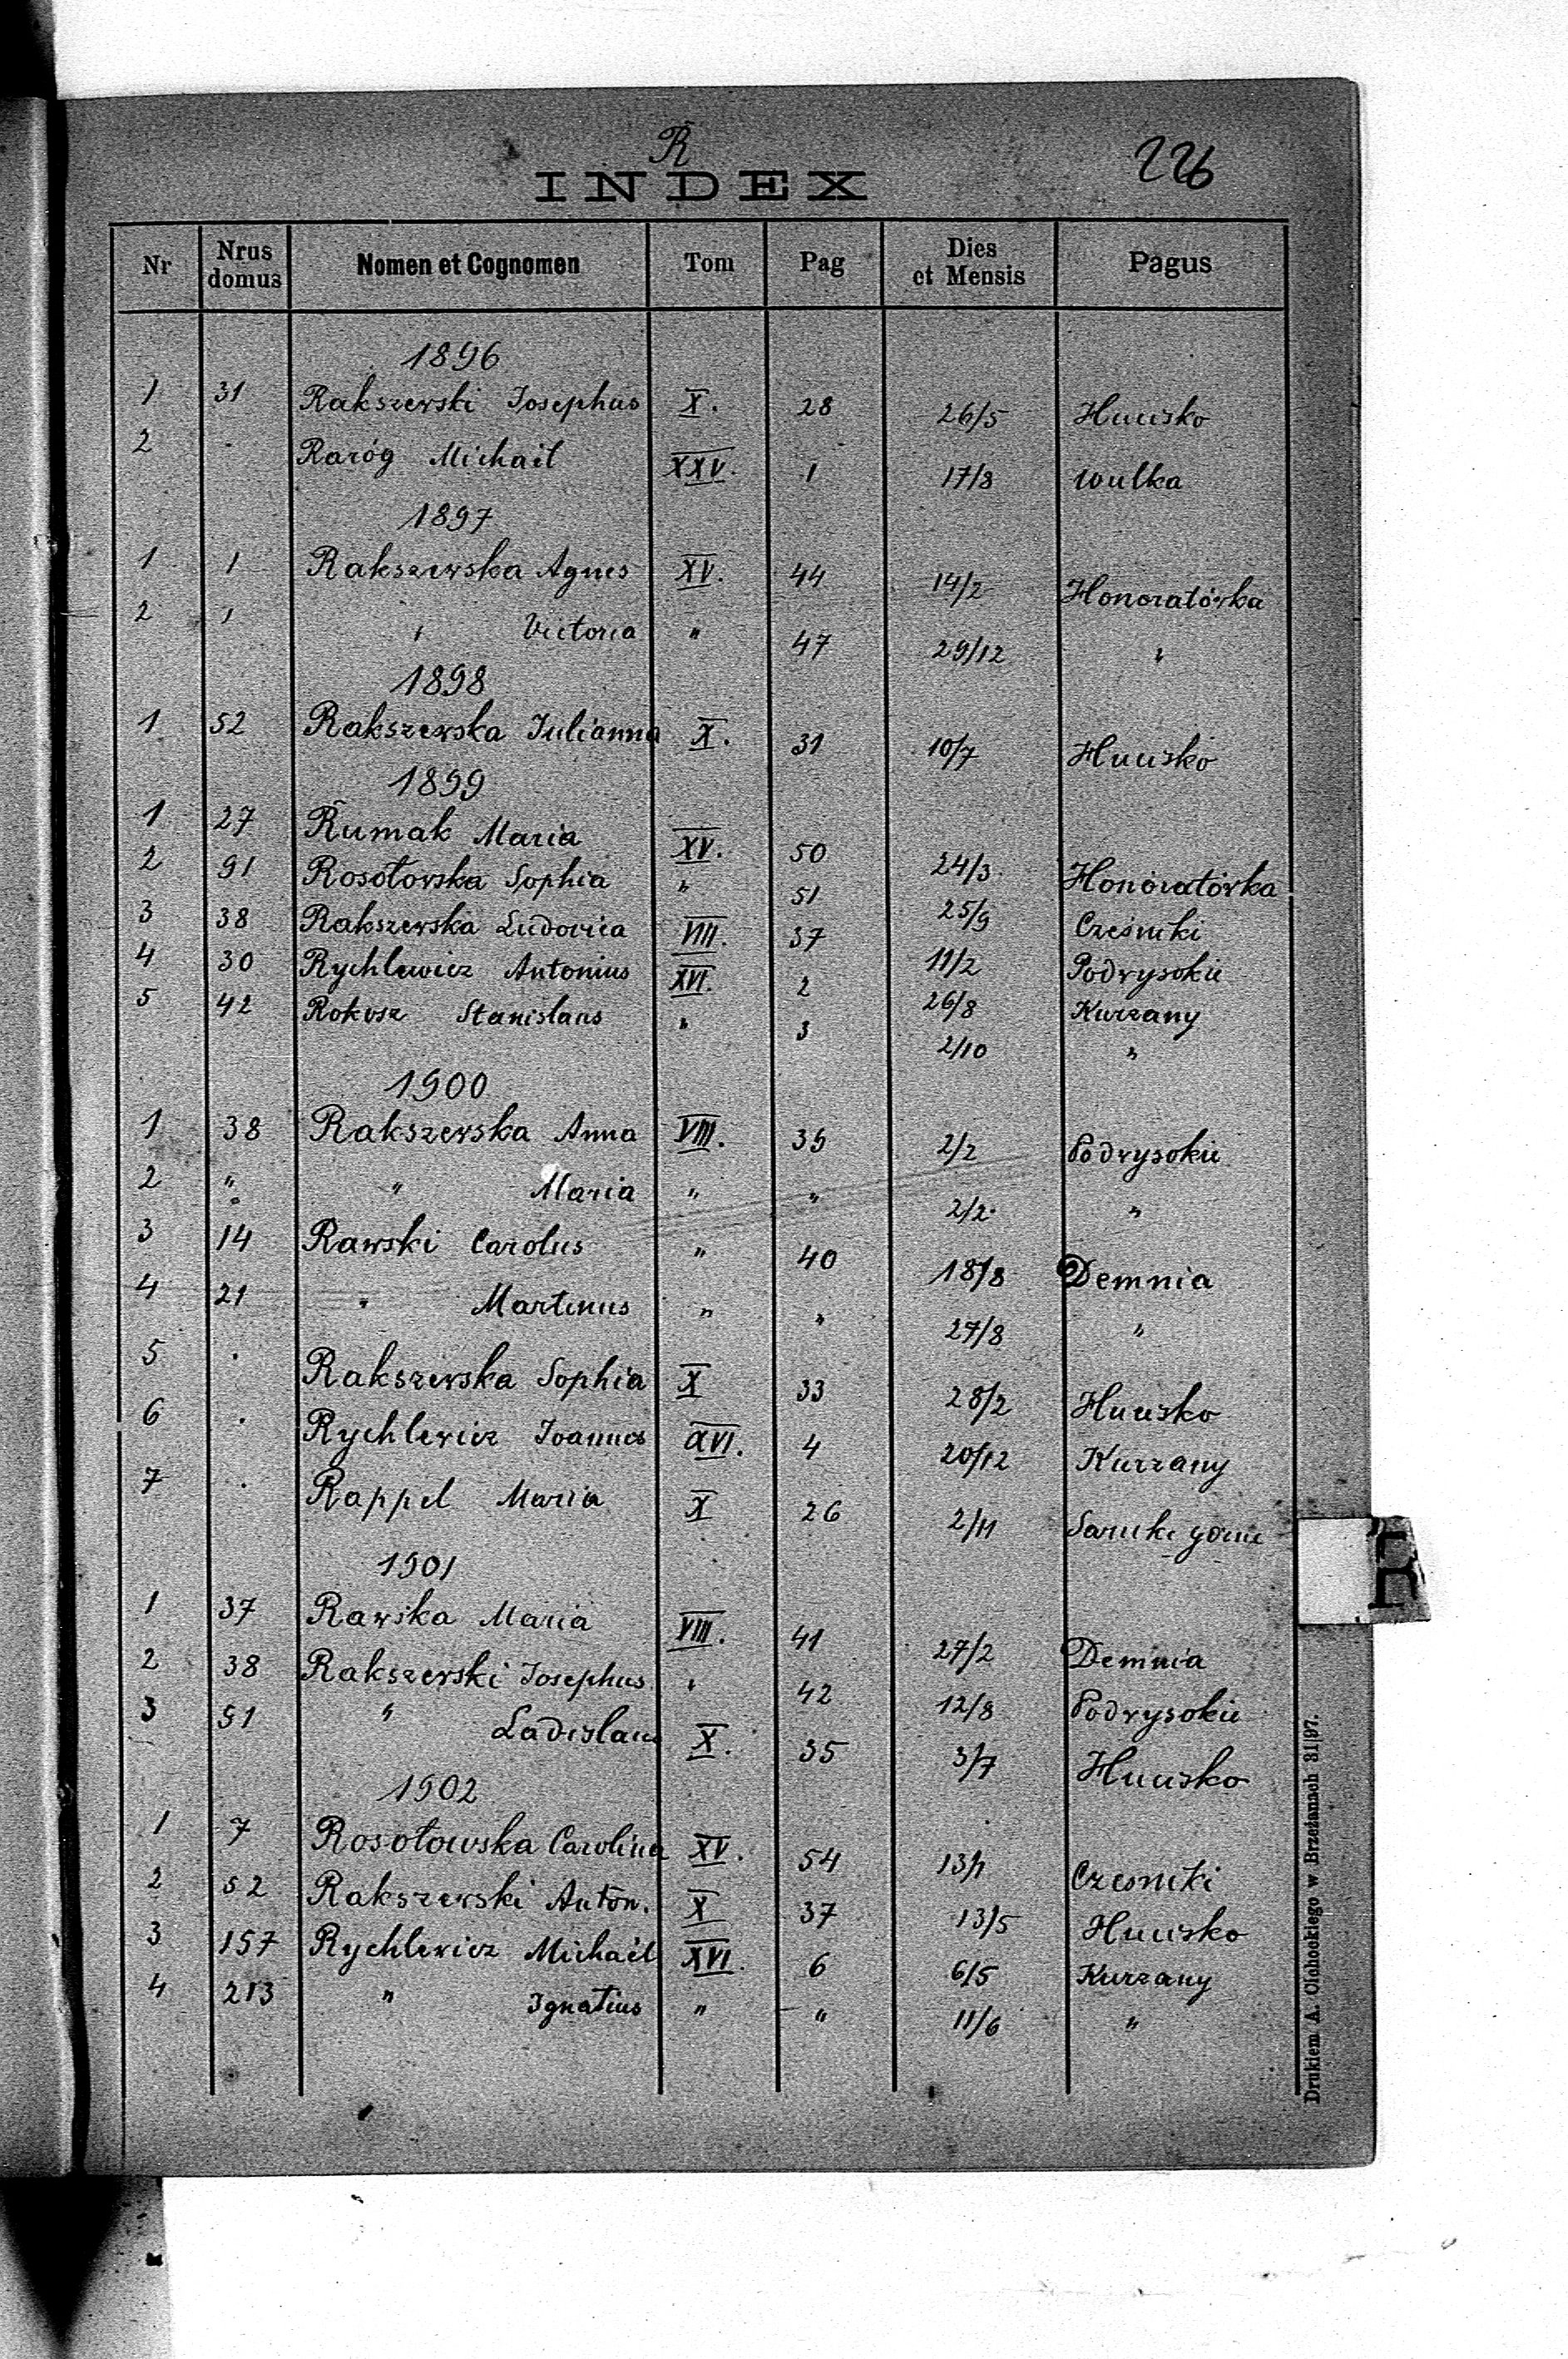 R
226
INDEX
Nr Nrus domus Nomen et Cognomen Tom Pag Dies et Mensis Pagus
1896
1 31 Rakszewski Josephus X. 28 26/5 Hucisko
2 Raróg Michael XXV. 1 17/8 Wulka
1897
1 1 Rakszewska Agnes XV. 44 14/2 Honoratówka
2 1 " Victoria " 47 29/12 "
1898
1 52 Rakszewska Julianna X. 31 10/7 Hucisko
1899
1 27 Rumak Maria XV. 50 24/3 Honoratówka
2 91 Rosołowska Sophia " 51 25/9 Cześniki
3 38 Rakszewska Ludovica VIII. 37 11/2 Podwysokie
4 30 Rychlewicz Antonius XVI. 2 26/8 Kurzany
5 42 Rokosz Stanislaus " 3 2/10 "
1900
1 38 Rakszewska Anna VIII. 39 2/2 Podwysokie
2 " " Maria " " 2/2 "
3 14 Rawski Carolus " 40 18/8 Demnia
4 21 " Martinus " " 27/8 "
5 . Rakszewska Sophia X 33 28/2 Hucisko
6 . Rychlewicz Joannes XVI. 4 20/12 Kurzany
7 . Rappel Maria X 26 2/11 Sarnki górne
1901
1 37 Rawska Maria VIII. 41 27/2 Demnia
2 38 Rakszewski Josephus " 42 12/8 Podwysokie
3 51 " Ladislaus X. 35 3/7 Hucisko
1902
1 7 Rosołowska Carolina XV. 54 13/1 Cześniki
2 52 Rakszewski Anton. X 37 13/5 Hucisko
3 157 Rychlewicz Michael XVI. 6 6/5 Kurzany
4 213 " Ignatius " " 11/6 "
Drukiem A. Ołobockiego w Brzeżanach 31|97.
R